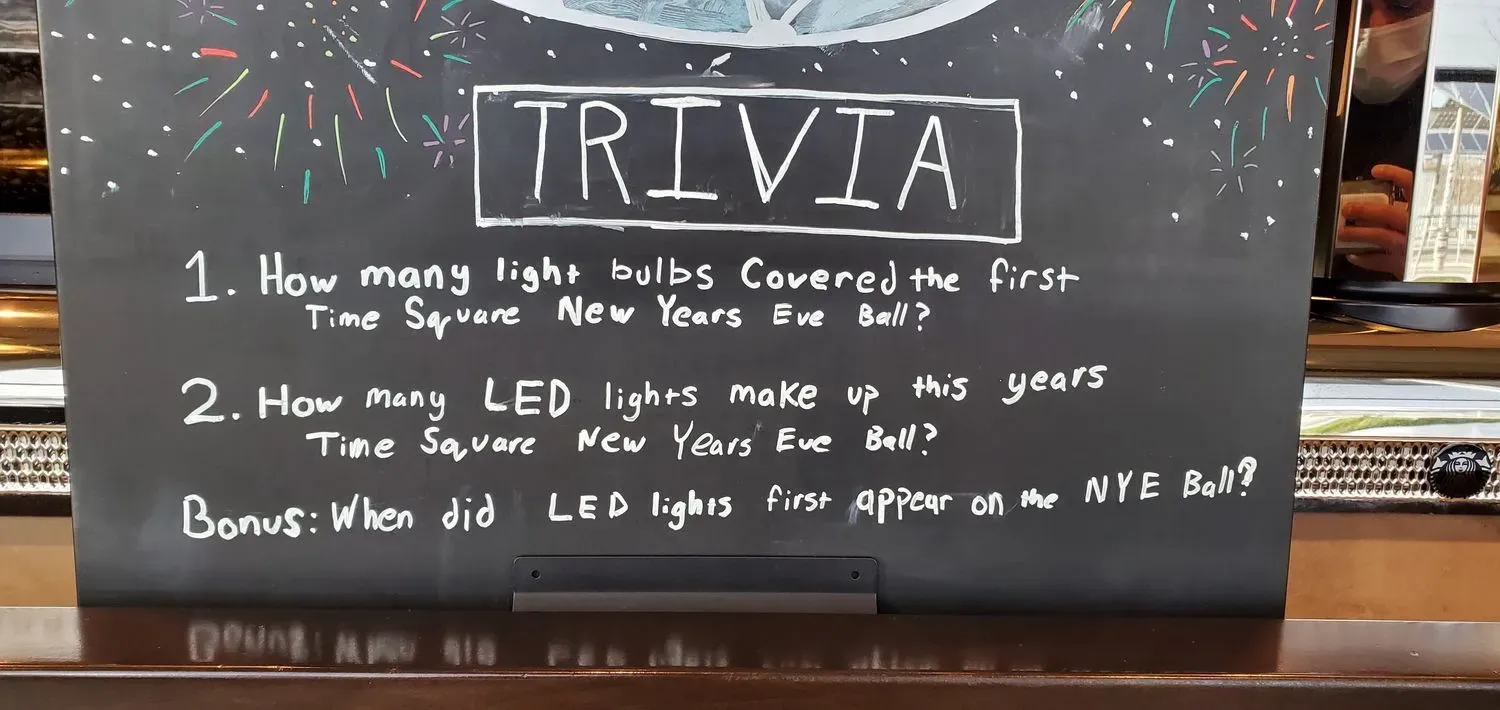 TRIVIA
1. How many light bulbs Covered the first
Time Square New Years Eve Ball?
2. How many LED lights make up this years
Time Square New Years Eve Ball?
Bonus: When did LED lights first appear on the NYE Ball?